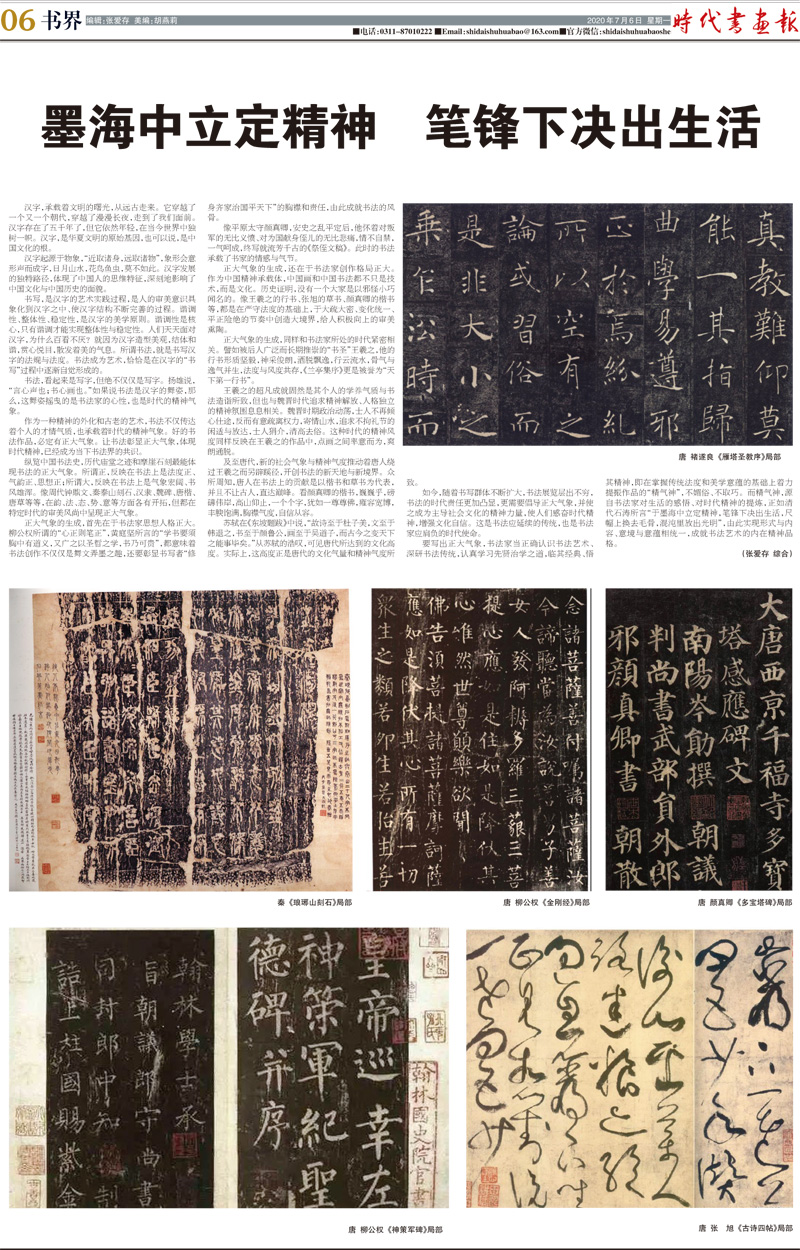 06 书界 编辑:张爱存 美编:胡燕莉
2020年7月6日 星期一
时代书画报
■电话:0311-87010222 ■Email:shidaishuhuabao@163.com■官方微信:shidaishuhuabaoshe
墨海中立定精神 笔锋下决出生活
汉字,承载着文明的曙光,从远古走来。它穿越了
一个又一个朝代,穿越了漫漫长夜,走到了我们面前。
汉字存在了五千年了,但它依然年轻,在当今世界中独
树一帜。汉字,是华夏文明的原始基因,也可以说,是中
国文化的根。
汉字起源于物象,“近取诸身,远取诸物”,象形会意
形声而成字,日月山水,花鸟鱼虫,莫不如此。汉字发展
的独特路径,体现了中国人的思维特征,深刻地影响了
中国文化与中国历史的面貌。
书写,是汉字的艺术实践过程,是人的审美意识具
象化到汉字之中,使汉字结构不断完善的过程。谐调
性、整体性、稳定性,是汉字的美学原则。谐调性是核
心,只有谐调才能实现整体性与稳定性。人们天天面对
汉字,为什么百看不厌?就因为汉字造型美观,结体和
谐,赏心悦目,散发着美的气息。所谓书法,就是书写汉
字的法规与法度。书法成为艺术,恰恰是在汉字的“书
写”过程中逐渐自觉形成的。
书法,看起来是写字,但绝不仅仅是写字。扬雄说,
“言心声也;书心画也。”如果说书法是汉字的舞姿,那
么,这舞姿摇曳的是书法家的心性,也是时代的精神气
象。
作为一种精神的外化和古老的艺术,书法不仅传达
着个人的才情气质,也承载着时代的精神气象。好的书
法作品,必定有正大气象。让书法彰显正大气象,体现
时代精神,已经成为当下书法界的共识。
纵览中国书法史,历代庙堂之迹和摩崖石刻最能体
现书法的正大气象。所谓正,反映在书法上是法度正、
气韵正、思想正;所谓大,反映在书法上是气象宏阔、书
风雄浑。像周代钟鼎文,秦泰山刻石,汉隶、魏碑、唐楷、
唐草等等,在韵、法、态、势、意等方面各有开拓,但都在
特定时代的审美风尚中呈现正大气象。
正大气象的生成,首先在于书法家思想人格正大。
柳公权所谓的“心正则笔正”,黄庭坚所言的“学书要须
胸中有道义,又广之以圣哲之学,书乃可贵”,都意味着
书法创作不仅仅是舞文弄墨之趣,还要彰显书写者“修
身齐家治国平天下”的胸襟和责任,由此成就书法的风
骨。
像平原太守颜真卿,安史之乱平定后,他怀着对叛
军的无比义愤,对为国献身侄儿的无比悲痛,情不自禁,
一气呵成,终写就流芳千古的《祭侄文稿》。此时的书法
承载了书家的情感与气节。
正大气象的生成,还在于书法家创作格局正大。
作为中国精神承载体,中国画和中国书法都不只是技
术,而是文化。历史证明,没有一个大家是以邪怪小巧
闻名的。像王羲之的行书、张旭的草书、颜真卿的楷书
等,都是在严守法度的基础上,于大疏大密、变化统一、
平正险绝的节奏中创造大境界,给人积极向上的审美
熏陶。
正大气象的生成,同样和书法家所处的时代紧密相
关。譬如被后人广泛而长期推崇的“书圣”王羲之,他的
行书形质坚毅,神采俊朗,洒脱飘逸,行云流水,骨气与
逸气并生,法度与风度共存,《兰亭集序》更是被誉为“天
下第一行书”。
王羲之的超凡成就固然是其个人的学养气质与书
法造诣所致,但也与魏晋时代追求精神解放、人格独立
的精神氛围息息相关。魏晋时期政治动荡,士人不再倾
心仕途,反而有意疏离权力,寄情山水,追求不拘礼节的
闲适与放达,士人狷介,清高去俗。这种时代的精神风
度同样反映在王羲之的作品中,点画之间率意而为,爽
朗通脱。
及至唐代,新的社会气象与精神气度推动着唐人绕
过王羲之而另辟蹊径,开创书法的新天地与新境界。众
所周知,唐人在书法上的贡献是以楷书和草书为代表,
并且不让古人,直达巅峰。看颜真卿的楷书,巍巍乎,磅
礴伟岸,高山仰止,一个个字,犹如一尊尊佛,雍容宽博,
丰腴饱满,胸襟气度,自信从容。
苏轼在《东坡题跋》中说,“故诗至于杜子美,文至于
韩退之,书至于颜鲁公,画至于吴道子,而古今之变天下
之能事毕矣。”从苏轼的语叹,可见唐代所达到的文化高
度。实际上,这高度正是唐代的文化气量和精神气度所
致。
如今,随着书写群体不断扩大,书法展览层出不穷,
书法的时代责任更加凸显,更需要倡导正大气象,并使
之成为主导社会文化的精神力量,使人们感奋时代精
神,增强文化自信。这是书法应延续的传统,也是书法
家应肩负的时代使命。
要写出正大气象,书法家当正确认识书法艺术、
深研书法传统,认真学习先贤治学之道,临其经典、悟
其精神,即在掌握传统法度和美学意蕴的基础上着力
提振作品的“精气神”,不媚俗、不取巧。而精气神,源
自书法家对生活的感悟、对时代精神的提炼,正如清
代石涛所言“于墨海中立定精神,笔锋下决出生活,尺
幅上换去毛骨,混沌里放出光明”,由此实现形式与内
容、意境与意蕴相统一,成就书法艺术的内在精神品
格。
(张爱存 综合)
真教难仰莫
能一其指归
曲学易遵邪
正於焉纷纠
所以空有之
论或习俗而
是非大小之
乘乍沿时而
唐 褚遂良《雁塔圣教序》局部
秦《琅琊山刻石》局部
念诸菩萨善付嘱诸菩萨汝
今谛听当为汝说善男子善
女人发阿耨多罗三藐三菩
提心应如是住如是降伏其
心唯然世尊愿乐欲闻
佛告须菩提诸菩萨摩诃萨
应如是降伏其心所有一切
众生之类若卵生若胎生若
唐 柳公权《金刚经》局部
大唐西京千福寺多宝
塔感应碑文
南阳岑勋撰 朝议
判尚书武部员外郎
邪颜真卿书 朝散
唐 颜真卿《多宝塔碑》局部
皇帝巡幸左
神策军纪圣
德碑并序
翰林学士承
旨朝议郎守尚书
司封郎中知制
诰上柱国赐紫金
翰林国史院官书
唐 柳公权《神策军碑》局部
唐 张 旭《古诗四帖》局部